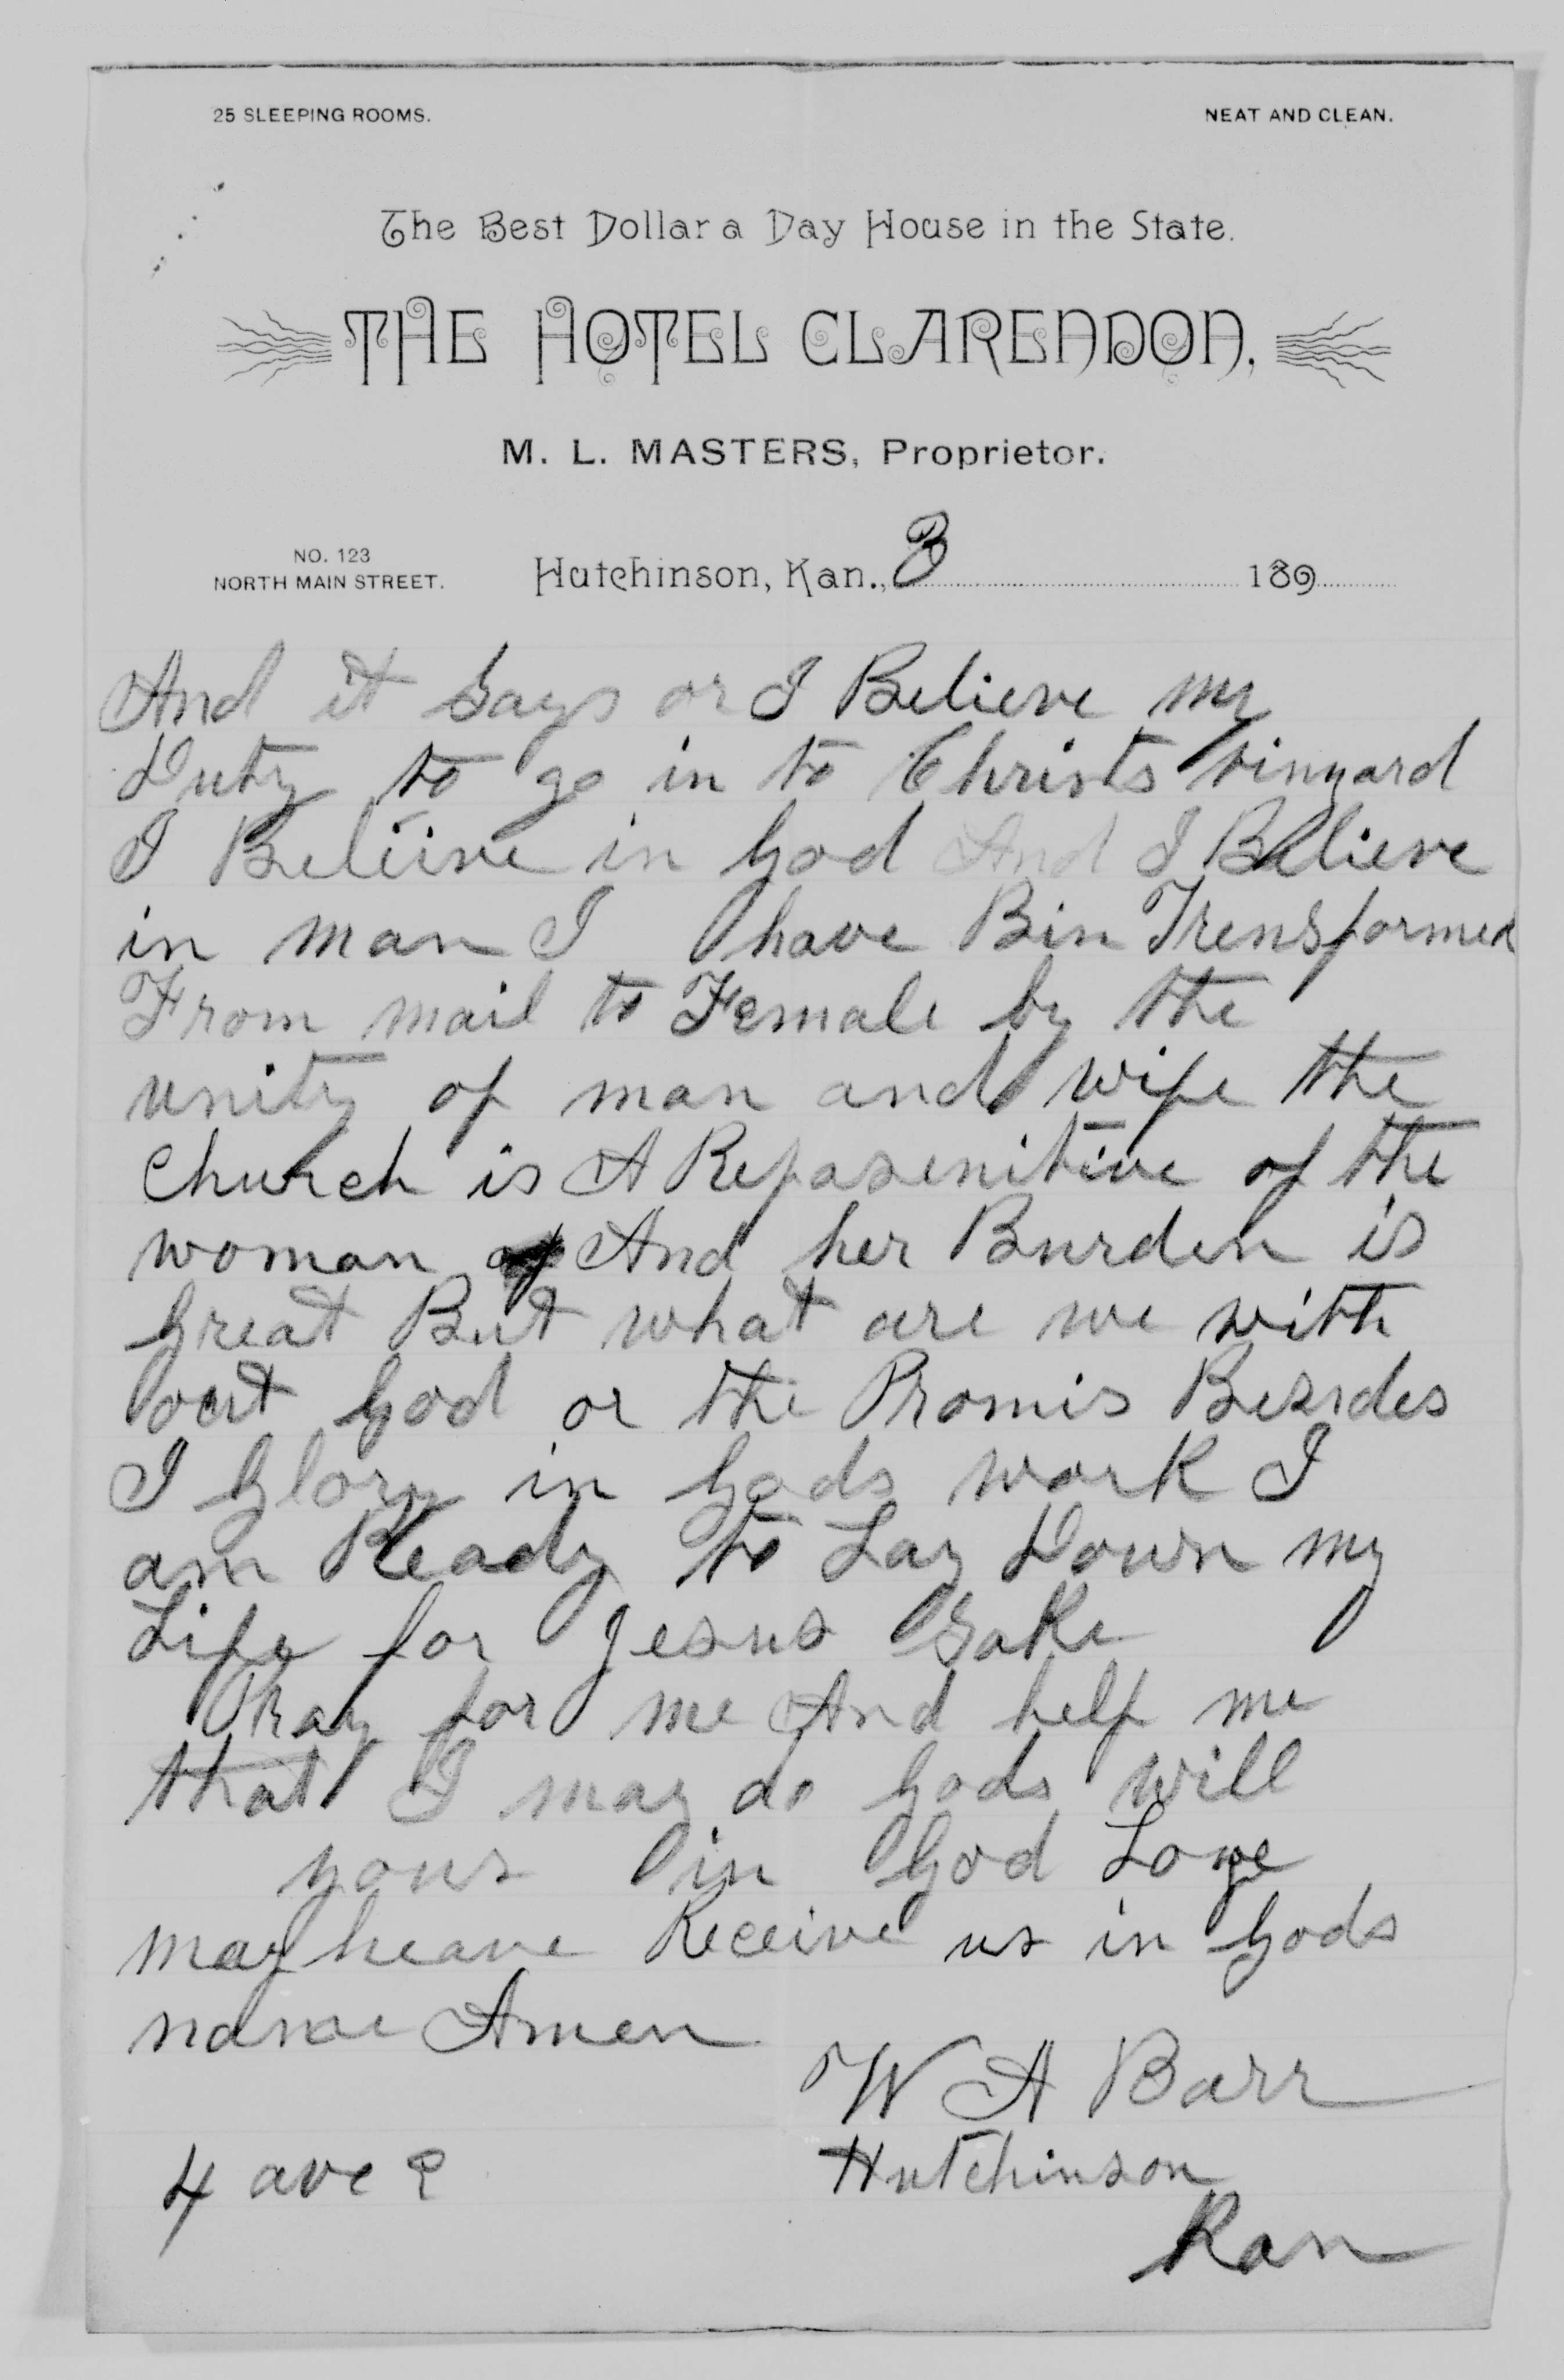 25 SLEEPING ROOMS. NEAT AND CLEAN.
The Best Dollar a Day House in the State.
THE HOTEL CLARENDON,
M. L. MASTERS, Proprietor.
NO. 123
NORTH MAIN STREET.
Hutchinson, Kan., 3 189
And it says or I Believe my
Duty to go in to Christs vinyard
I Beliive in God And I Believe
in man I have Bin Trensformed
From mail to Female by the
unity of man and wife the
Church is A Repasenitive of the
woman And her Burden is
Great But what are we with
out God or the Promis Besides
I Glory in Gods work I
am Ready to Lay Down my
Life for Jesus Sake
Pray for me And help me
that I may do Gods will
yours in God Love
may heave Receive us in Gods
name Amen
W A Barr
4 ave E
Hutchinson
Kan